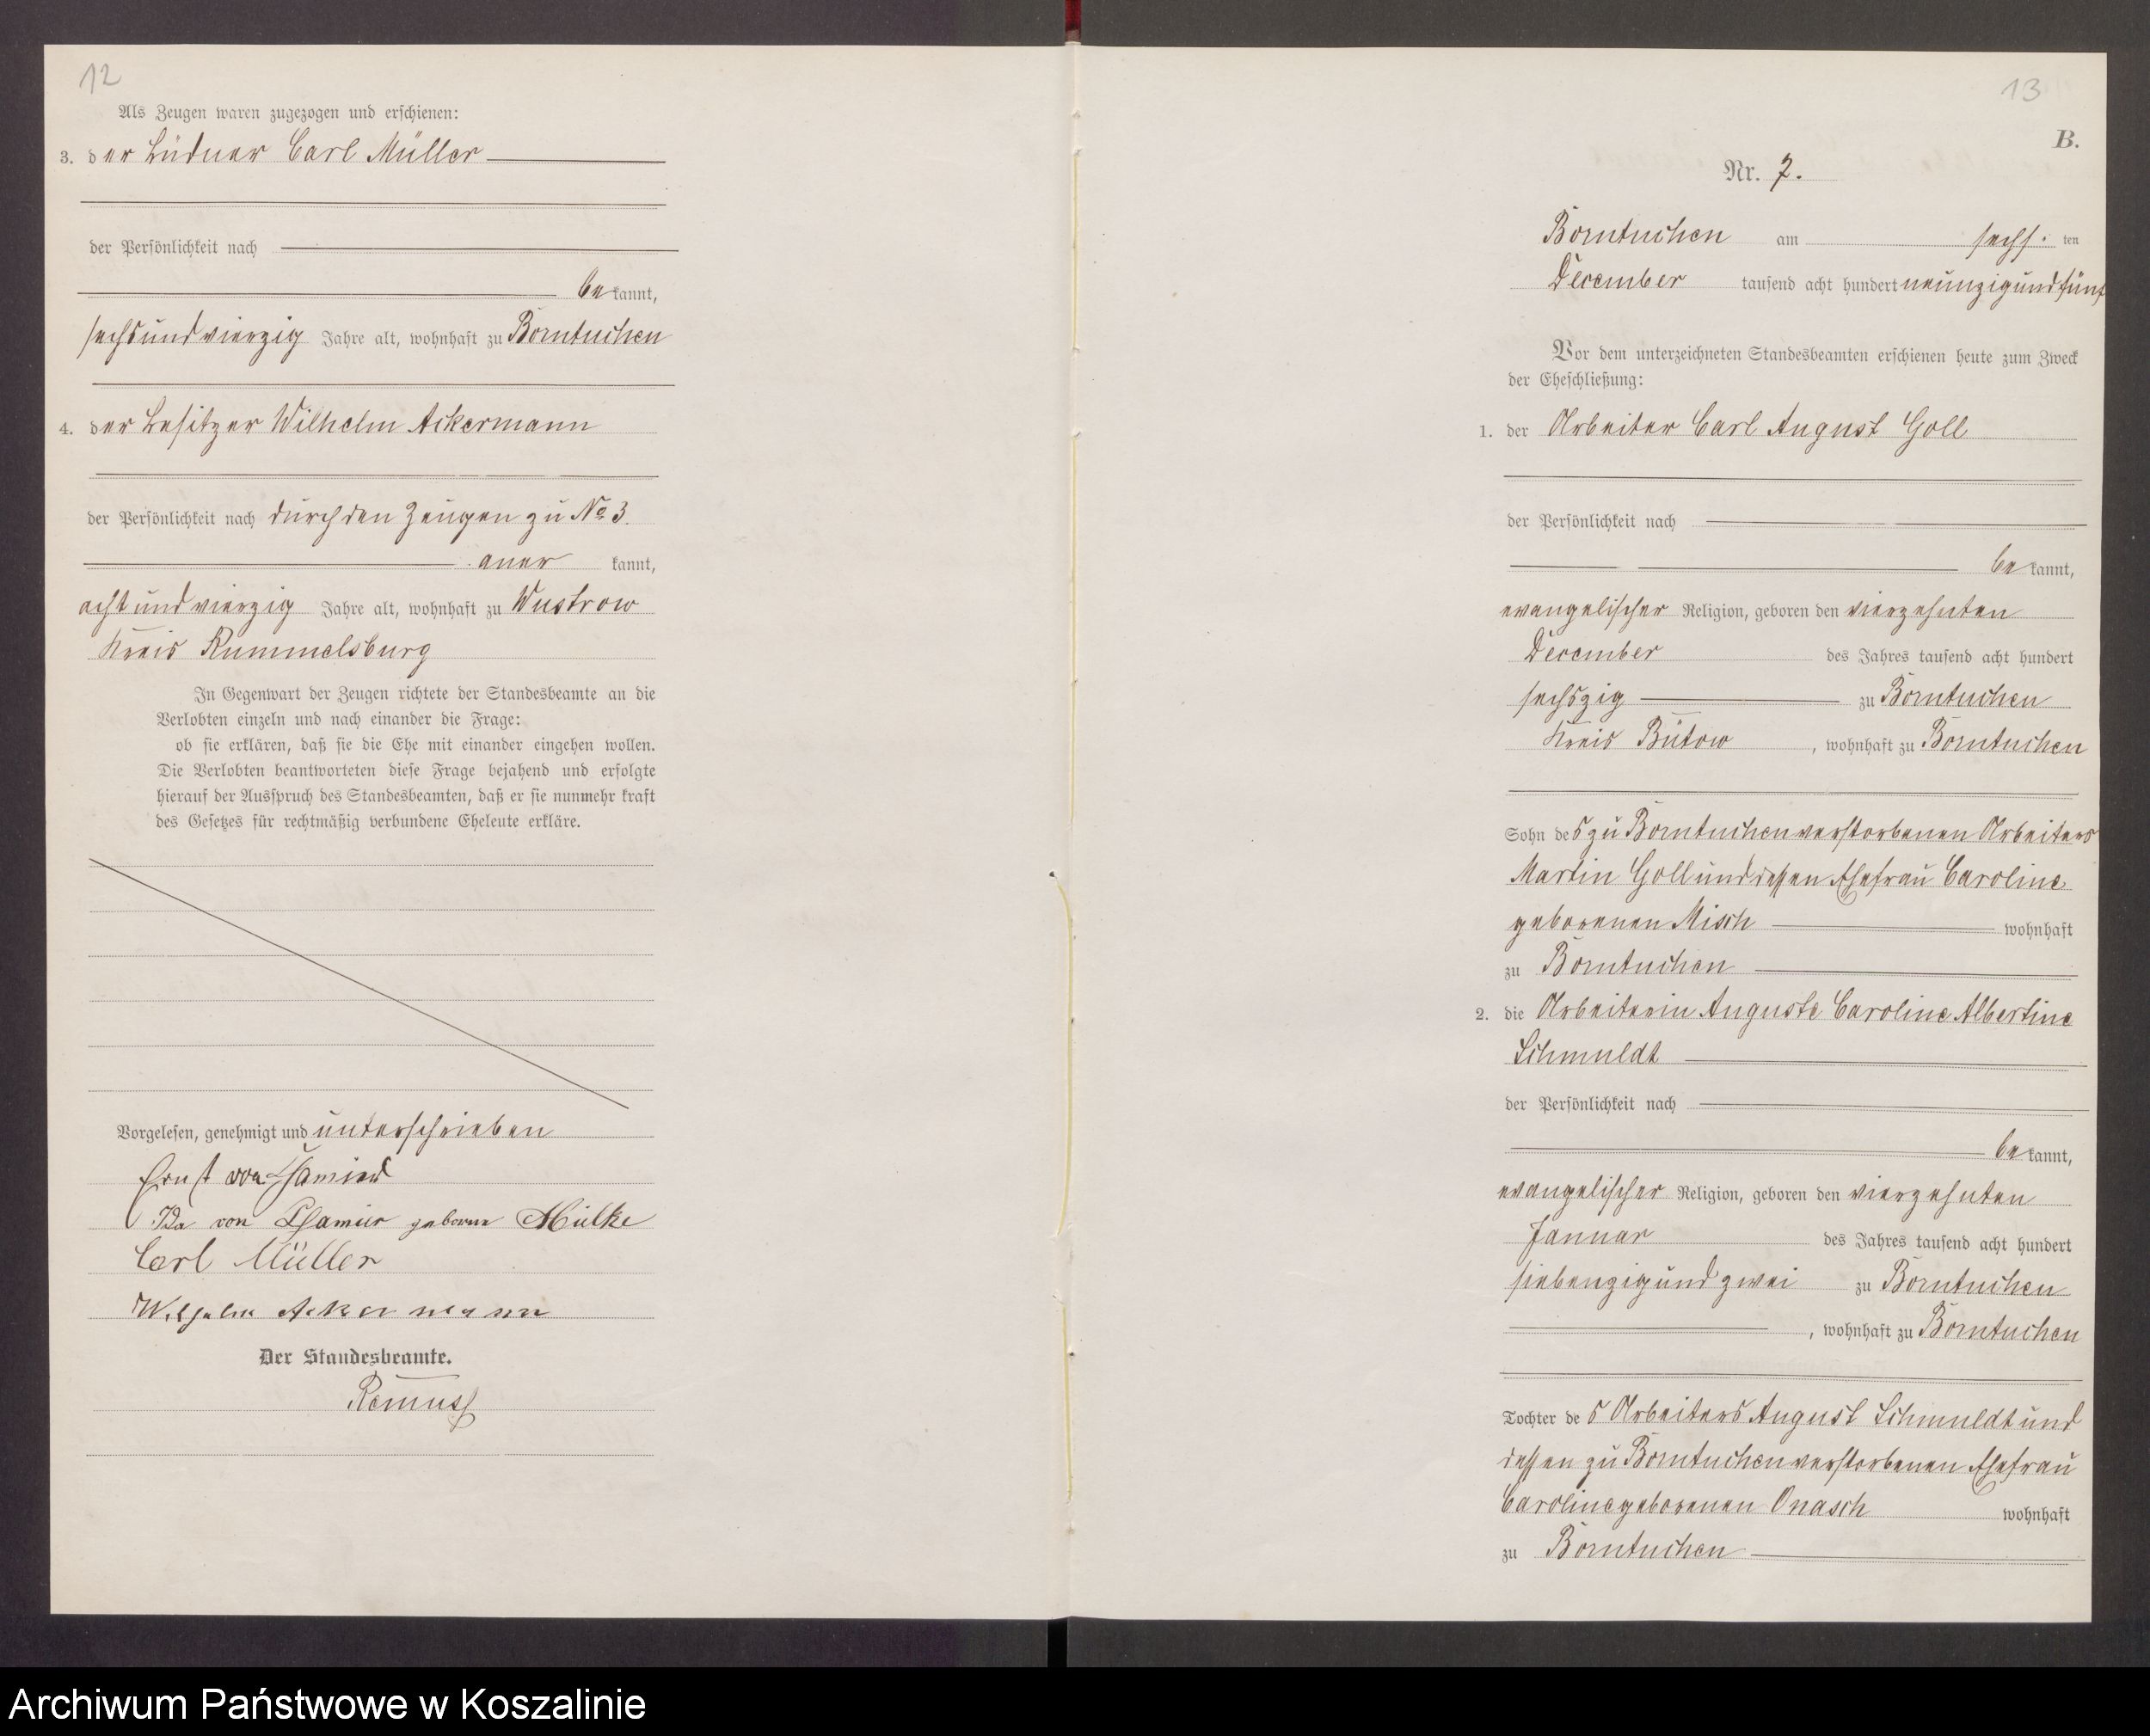 12
Als Zeugen waren zugezogen und erschienen:
3. der Büdner Carl Müller
der Persönlichkeit nach
bekannt,
sechsundvierzig Jahre alt, wohnhaft zu Borntuchen
4. der Besitzer Wilhelm Ackermann
der Persönlichkeit nach durch den Zeugen zu No 3.
aner kannt,
achtundvierzig Jahre alt, wohnhaft zu Wustrow
Kreis Rummelsburg
In Gegenwart der Zeugen richtete der Standesbeamte an die
Verlobten einzeln und nach einander die Frage:
ob sie erklären, daß sie die Ehe mit einander eingehen wollen.
Die Verlobten beantworteten diese Frage bejahend und erfolgte
hierauf der Ausspruch des Standesbeamten, daß er sie nunmehr kraft
des Gesetzes für rechtmäßig verbundene Eheleute erkläre.
Vorgelesen, genehmigt und unterschrieben
Ernst von
Ida von geborne
Carl Müller
Wilhelm Ackermann
Der Standesbeamte.
Remus
13
B.
Nr. 7.
Borntuchen am sechs ten
December tausend acht hundert neunzigundfünf
Vor dem unterzeichneten Standesbeamten erschienen heute zum Zweck
der Eheschließung:
1. der Arbeiter Carl August Goll
der Persönlichkeit nach
bekannt,
evangelischer Religion, geboren den vierzehnten
December des Jahres tausend acht hundert
sechszig zu Borntuchen
Kreis Bütow, wohnhaft zu Borntuchen
Sohn des zu Borntuchen verstorbenen Arbeiters
Martin Goll und dessen Ehefrau Caroline
geborenen Misch wohnhaft
zu Borntuchen
2. die Arbeiterin Auguste Caroline Albertine
Schmuldt
der Persönlichkeit nach
bekannt,
evangelischer Religion, geboren den vierzehnten
Januar des Jahres tausend acht hundert
siebenzigundzwei zu Borntuchen
, wohnhaft zu Borntuchen
Tochter des Arbeiters August Schmuldt und
dessen zu Borntuchen verstorbenen Ehefrau
Caroline geborenen Onasch wohnhaft
zu Borntuchen
Archiwum Państwowe w Koszalinie